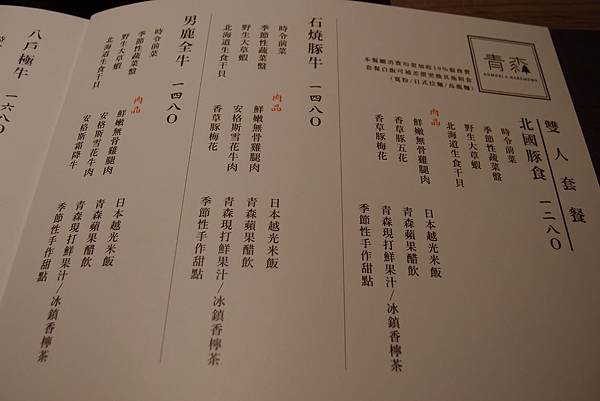 青森
AOMORI & NABEMONO
本餐廳消費均需加收10%服務費
套餐白飯可補差價更換其他副食
(寬粉/日式拉麵/烏龍麵)
雙人套餐
北國豚食 一二八〇
時令前菜
季節性蔬菜盤
野生大草蝦
北海道生食干貝
肉品
鮮嫩無骨雞腿肉
香草豚五花
香草豚梅花
日本越光米飯
青森蘋果醋飲
青森現打鮮果汁/冰鎮香檸茶
季節性手作甜點
石燒豚牛 一四八〇
時令前菜
季節性蔬菜盤
野生大草蝦
北海道生食干貝
肉品
鮮嫩無骨雞腿肉
安格斯雪花牛肉
香草豚梅花
日本越光米飯
青森蘋果醋飲
青森現打鮮果汁/冰鎮香檸茶
季節性手作甜點
男鹿全牛 一四八〇
時令前菜
季節性蔬菜盤
野生大草蝦
北海道生食干貝
肉品
鮮嫩無骨雞腿肉
安格斯雪花牛肉
安格斯霜降牛
日本越光米飯
青森蘋果醋飲
青森現打鮮果汁/冰鎮香檸茶
季節性手作甜點
八戶極牛 一六八〇